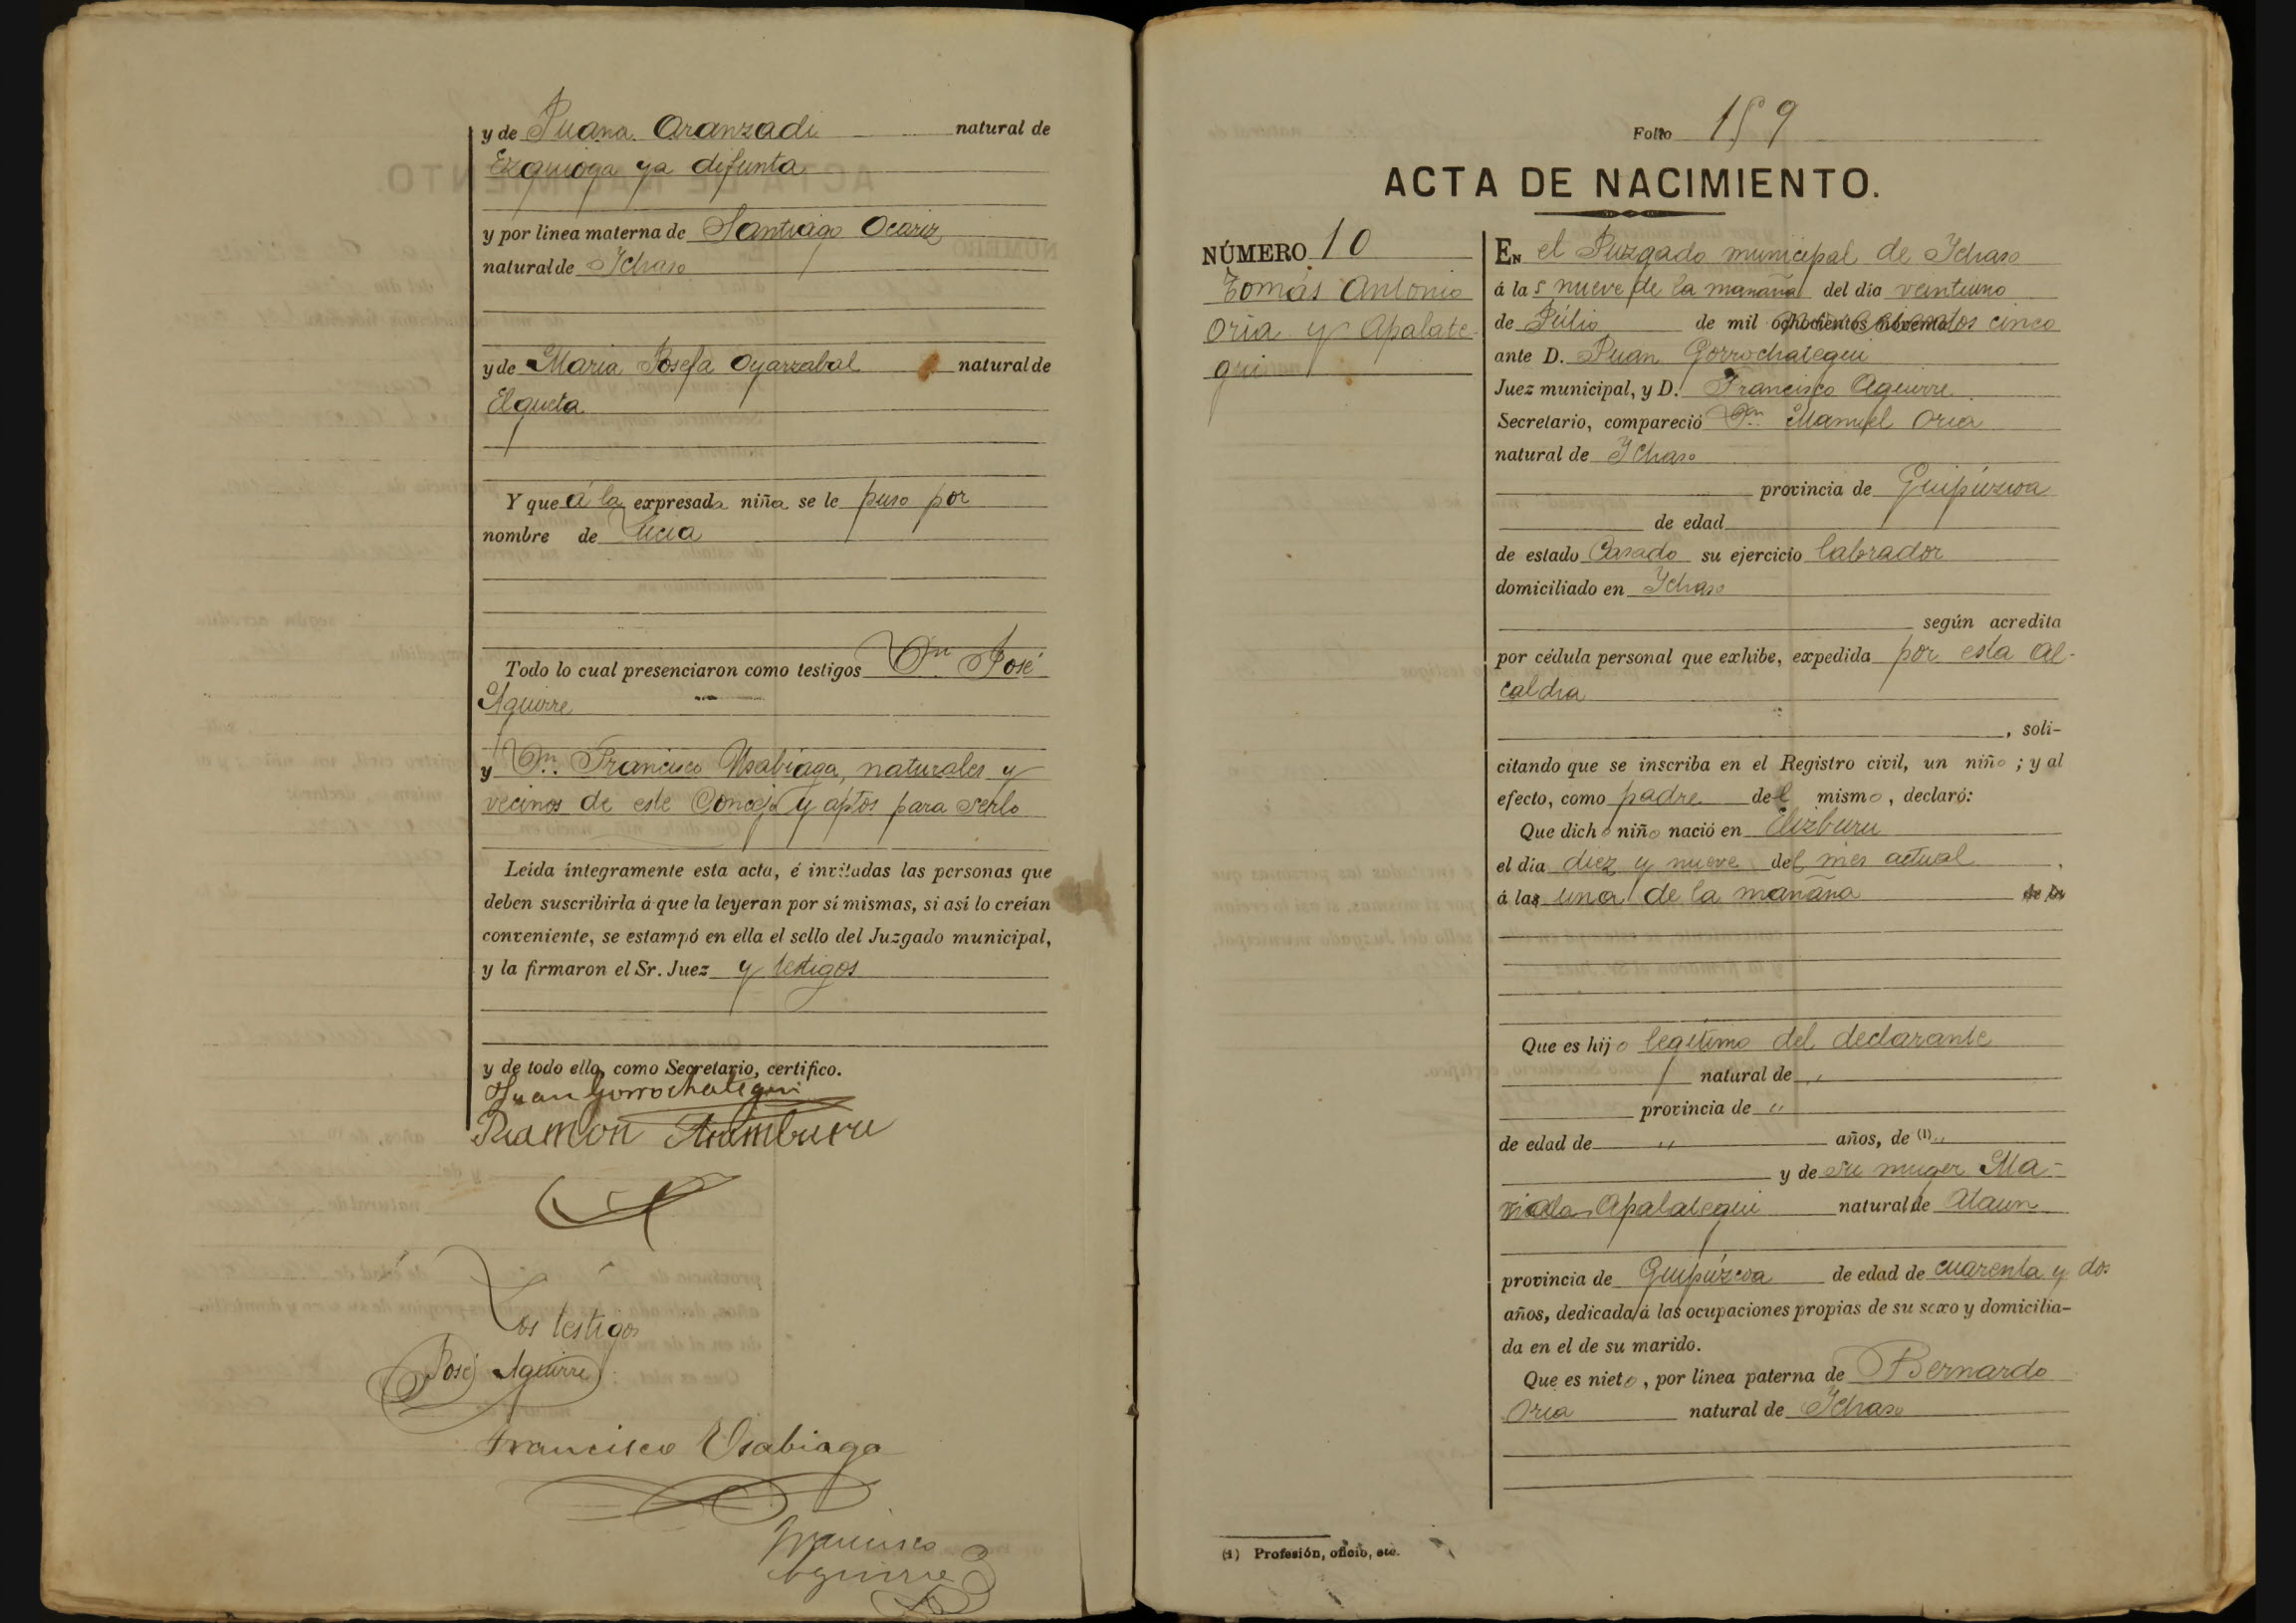 y de Juana Aranzadi natural de
Ezquioga ya difunta
y por línea materna de Santiago Ocariz
natural de Ychaso
y de Maria Josefa Oyarzabal natural de
Elgueta
Y que á la expresada niña se le puso por
nombre de Lucia
Todo lo cual presenciaron como testigos Dn José
Aguirre
y Dn. Francisco Usabiaga, naturales y
vecinos de este Concejo y aptos para serlo
Leída íntegramente esta acta, é invitadas las personas que
deben suscribirla á que la leyeran por sí mismas, si así lo creían
conveniente, se estampó en ella el sello del Juzgado municipal,
y la firmaron el Sr. Juez y testigos
y de todo ello, como Secretario, certifico.
Juan Gorrochategui
Ramon Aramburu
Los testigos
José Aguirre
Francisco Usabiaga
Francisco
Aguirre
Folio 159
ACTA DE NACIMIENTO.
NÚMERO 10
Tomás Antonio
Oria y Apalate
gui
EN el Juzgado municipal de Ychaso
á las nueve de la mañana del día veintiuno
de Julio de mil ochocientos noventa cinco
ante D. Juan Gorrochategui
Juez municipal, y D. Francisco Aguirre
Secretario, compareció Dn. Manuel Oria
natural de Ychaso
provincia de Guipúzcoa
de edad
de estado Casado su ejercicio labrador
domiciliado en Ychaso
según acredita
por cédula personal que exhibe, expedida por esta Al-
caldia
, soli-
citando que se inscriba en el Registro civil, un niño ; y al
efecto, como padre del mismo, declaró:
Que dicho niño nació en Elizburu
el día diez y nueve del mes actual
á las una de la mañana de la
Que es hijo legítimo del declarante
natural de "
provincia de "
de edad de " años, de (1) "
y de su muger Ma-
Apalategui natural de Ataun
provincia de Guipúzcoa de edad de cuarenta y dos
años, dedicada á las ocupaciones propias de su sexo y domicilia-
da en el de su marido.
Que es nieto, por línea paterna de Bernardo
Oria natural de Ychaso
(1) Profesión, oficio, etc.